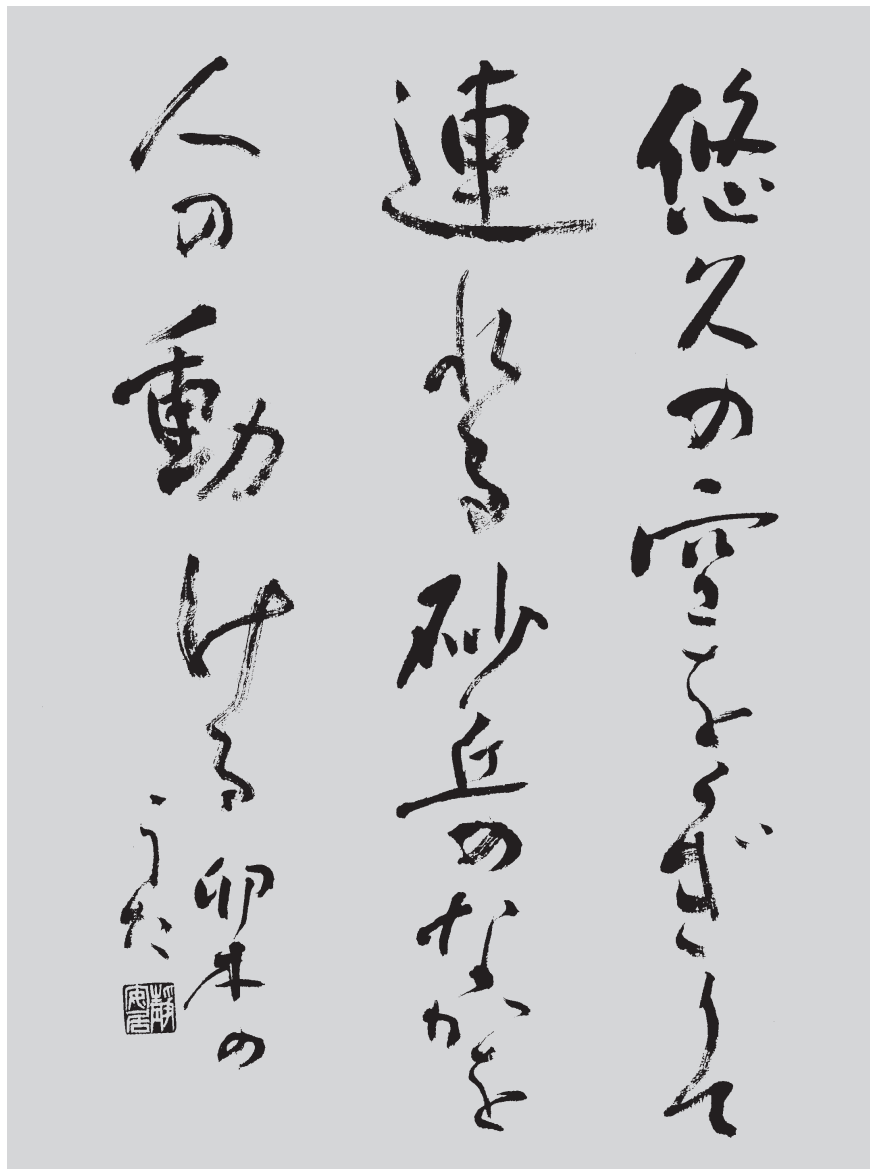 悠久の空をくぎりて
連れる砂丘のなかを
人の動ける 卯木の
うた